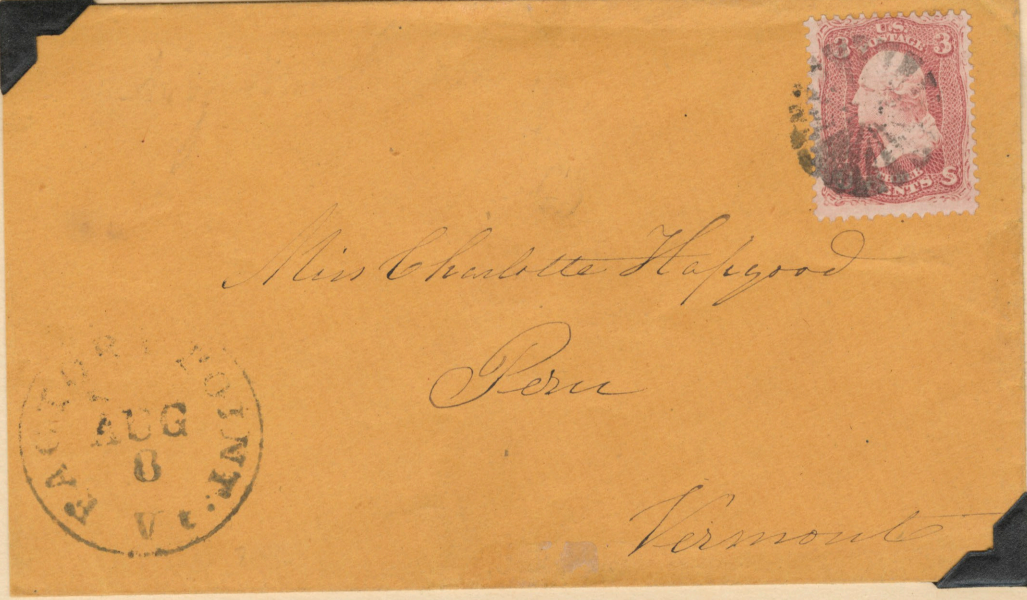 U.S.
POSTAGE
3 3
CENTS
Miss Charlotte Hapgood
Peru
Vermont
FACTORY POINT.
AUG
8
Vt.